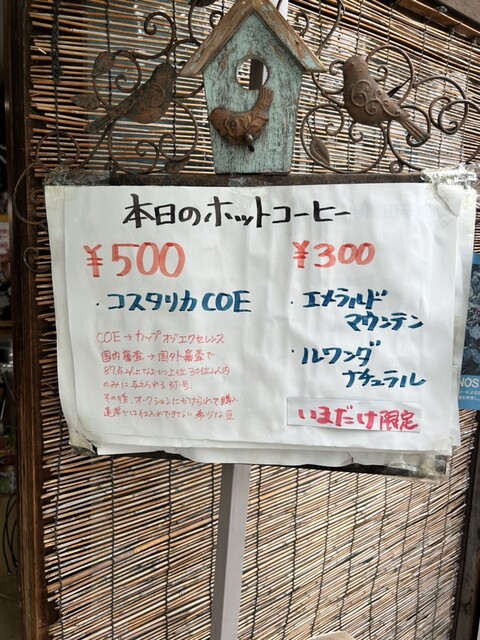 本日のホットコーヒー
¥500
・コスタリカCOE
COE→カップオブエクセレンス
国内審査→国外審査で
87点以上でなおかつ上位30位以内
のみに与えられる称号。
その後、オークションにかけられて購入
通常では仕入れできない希少な豆
¥300
・エメラルド
マウンテン
・ルワンダ
ナチュラル
いまだけ限定
NOS